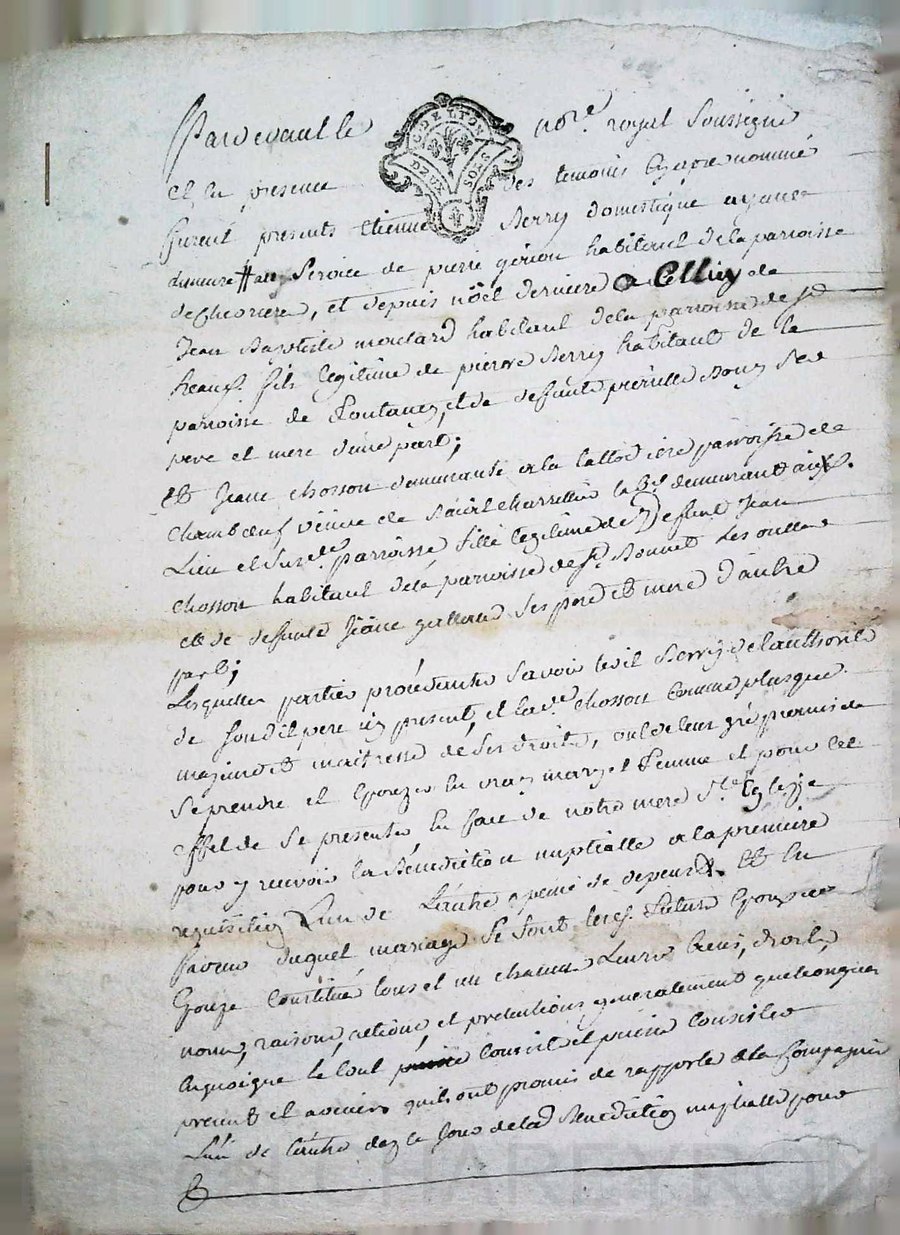 Pardevant le nore. royal soussigné
G. DE LYON
DEUX SOLS
et en presence des temoins cy apre nommé
furent presents Etienne Berry domestique ayant
demeure au service de pierre habitant de la parroisse
de et depuis nöel derniere a Celluy de
Jean Baptiste moulard habitant dela parroisse de st
heand. fils legitime de pierre Berry habitant de la
parroisse de fontanes, et de deffunte pierrette Bony ses
pere et mere d'une part;
Et Jeane chosson demeurante a la parroisse de
Chambœuf veuve de demeurant aud.
Lieu et susde. parroisse, fille legitime de deffunt Jean
chosson habitant dela parroisse de st. Bonnet Les oulles
et de deffunte Jeane ses pere et mere d'autre
part;
Lesquelles parties procedantes savoir ledit Berry de l'authorité
de sondit pere icy present, et lade. chosson comme plusque
majeure et maitresse de ses droits, ont de leur gré promis de
se prendre et Epouzer en vray mary et femme et pour cet
Effet de se presenter En face de notre mere Ste. Eglize
pour y recevoir la Benediction nuptialle a la premiere
requisition L'un de L'autre a peine de depens. Et En
faveur duquel mariage se sont lesd. futurs Epoux et
Epouze Constitué tous et un chacun Leurs biens, droits,
noms, raisons, actions, et pretentions generalement quelconques
En quoi que le tout consiste et puisse consister
presents et avenirs quils ont promis de rapporter a la Compagnie
L'un de l'autre dez le jour de lad. Benediction nuptialle pour
CHAREYRON